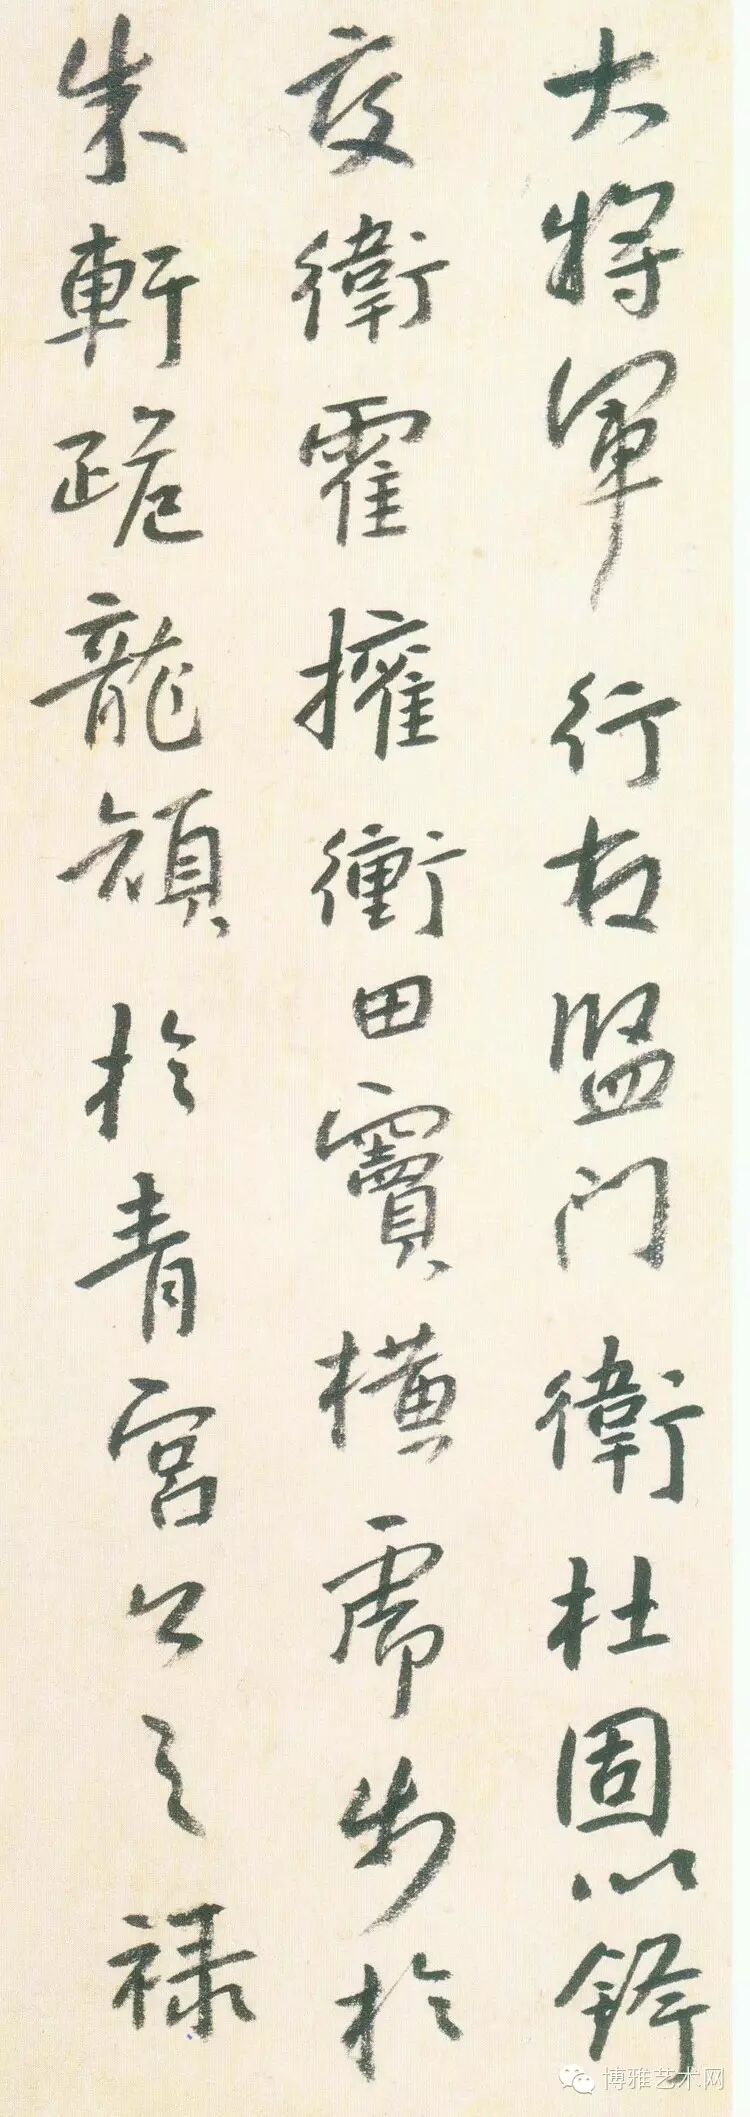 大將軍行右監门衛杜固以鋒
交衛霍擁衝田竇橫虎步於
朱軒跪龍顏於青宮公之祿
博雅艺术网